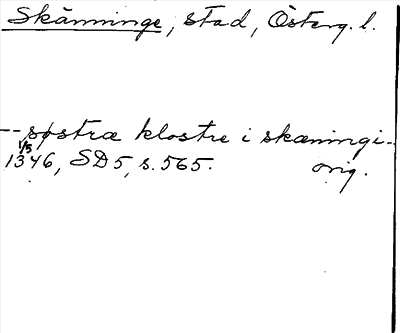 Skänninge, stad, Österg. l.
-- søstræ klostre i skæningi--
1/5
1346, SD 5, s. 565. orig.